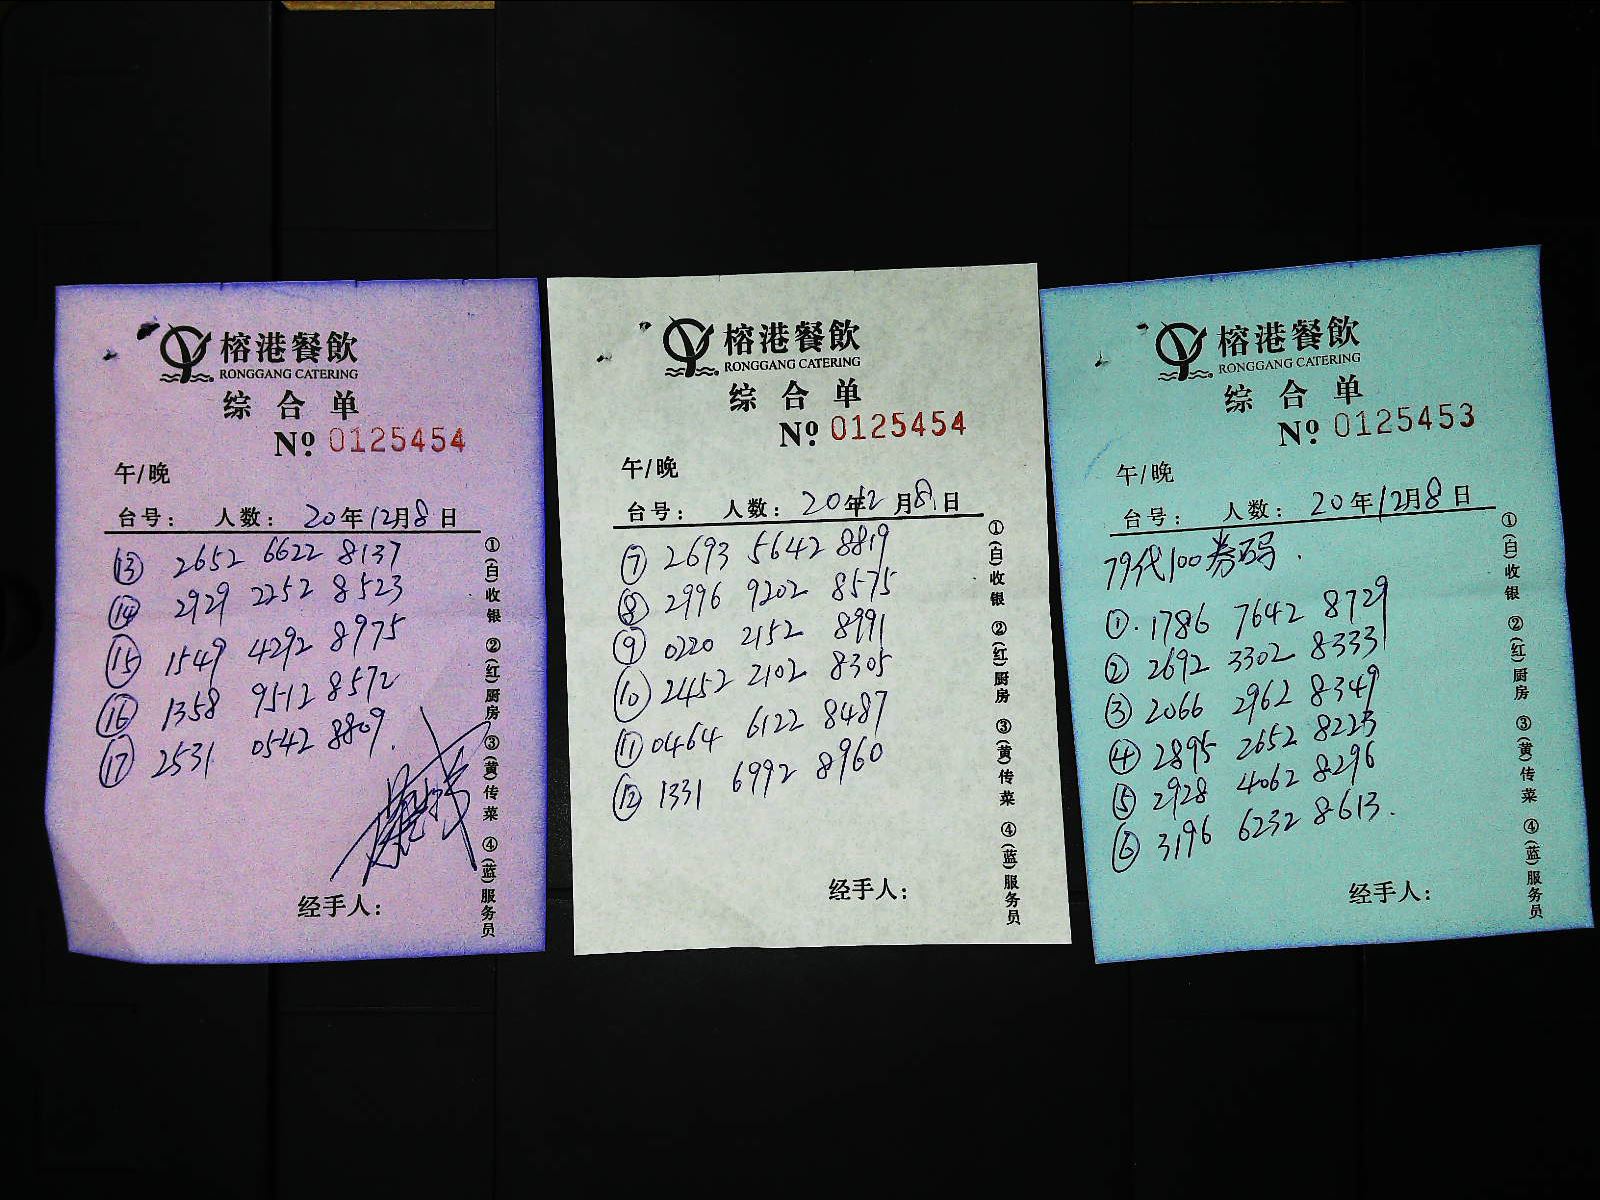 榕港餐飲
RONGGANG CATERING
综合单
Nº 0125454
午/晚
台号： 人数： 20年12月8日
⑬ 2652 6622 8137
⑭ 2929 2252 8523
⑮ 1549 4292 8975
⑯ 1358 9512 8572
⑰ 2531 0542 8809.
经手人：
①(白)收银 ②(红)厨房 ③(黄)传菜 ④(蓝)服务员
榕港餐飲
RONGGANG CATERING
综合单
Nº 0125454
午/晚
台号： 人数： 20年12月8日
⑦ 2693 5642 8819
⑧ 2996 9202 8575
⑨ 0220 2152 8991
⑩ 2452 2102 8305
⑪ 0464 6122 8487
⑫ 1331 6992 8960
经手人：
①(白)收银 ②(红)厨房 ③(黄)传菜 ④(蓝)服务员
榕港餐飲
RONGGANG CATERING
综合单
Nº 0125453
午/晚
台号： 人数： 20年12月8日
79代100券码.
①. 1786 7642 8729
② 2692 3302 8333
③ 2066 2962 8349
④ 2895 2652 8223
⑤ 2928 4062 8296
⑥ 3196 6232 8613.
经手人：
①(白)收银 ②(红)厨房 ③(黄)传菜 ④(蓝)服务员